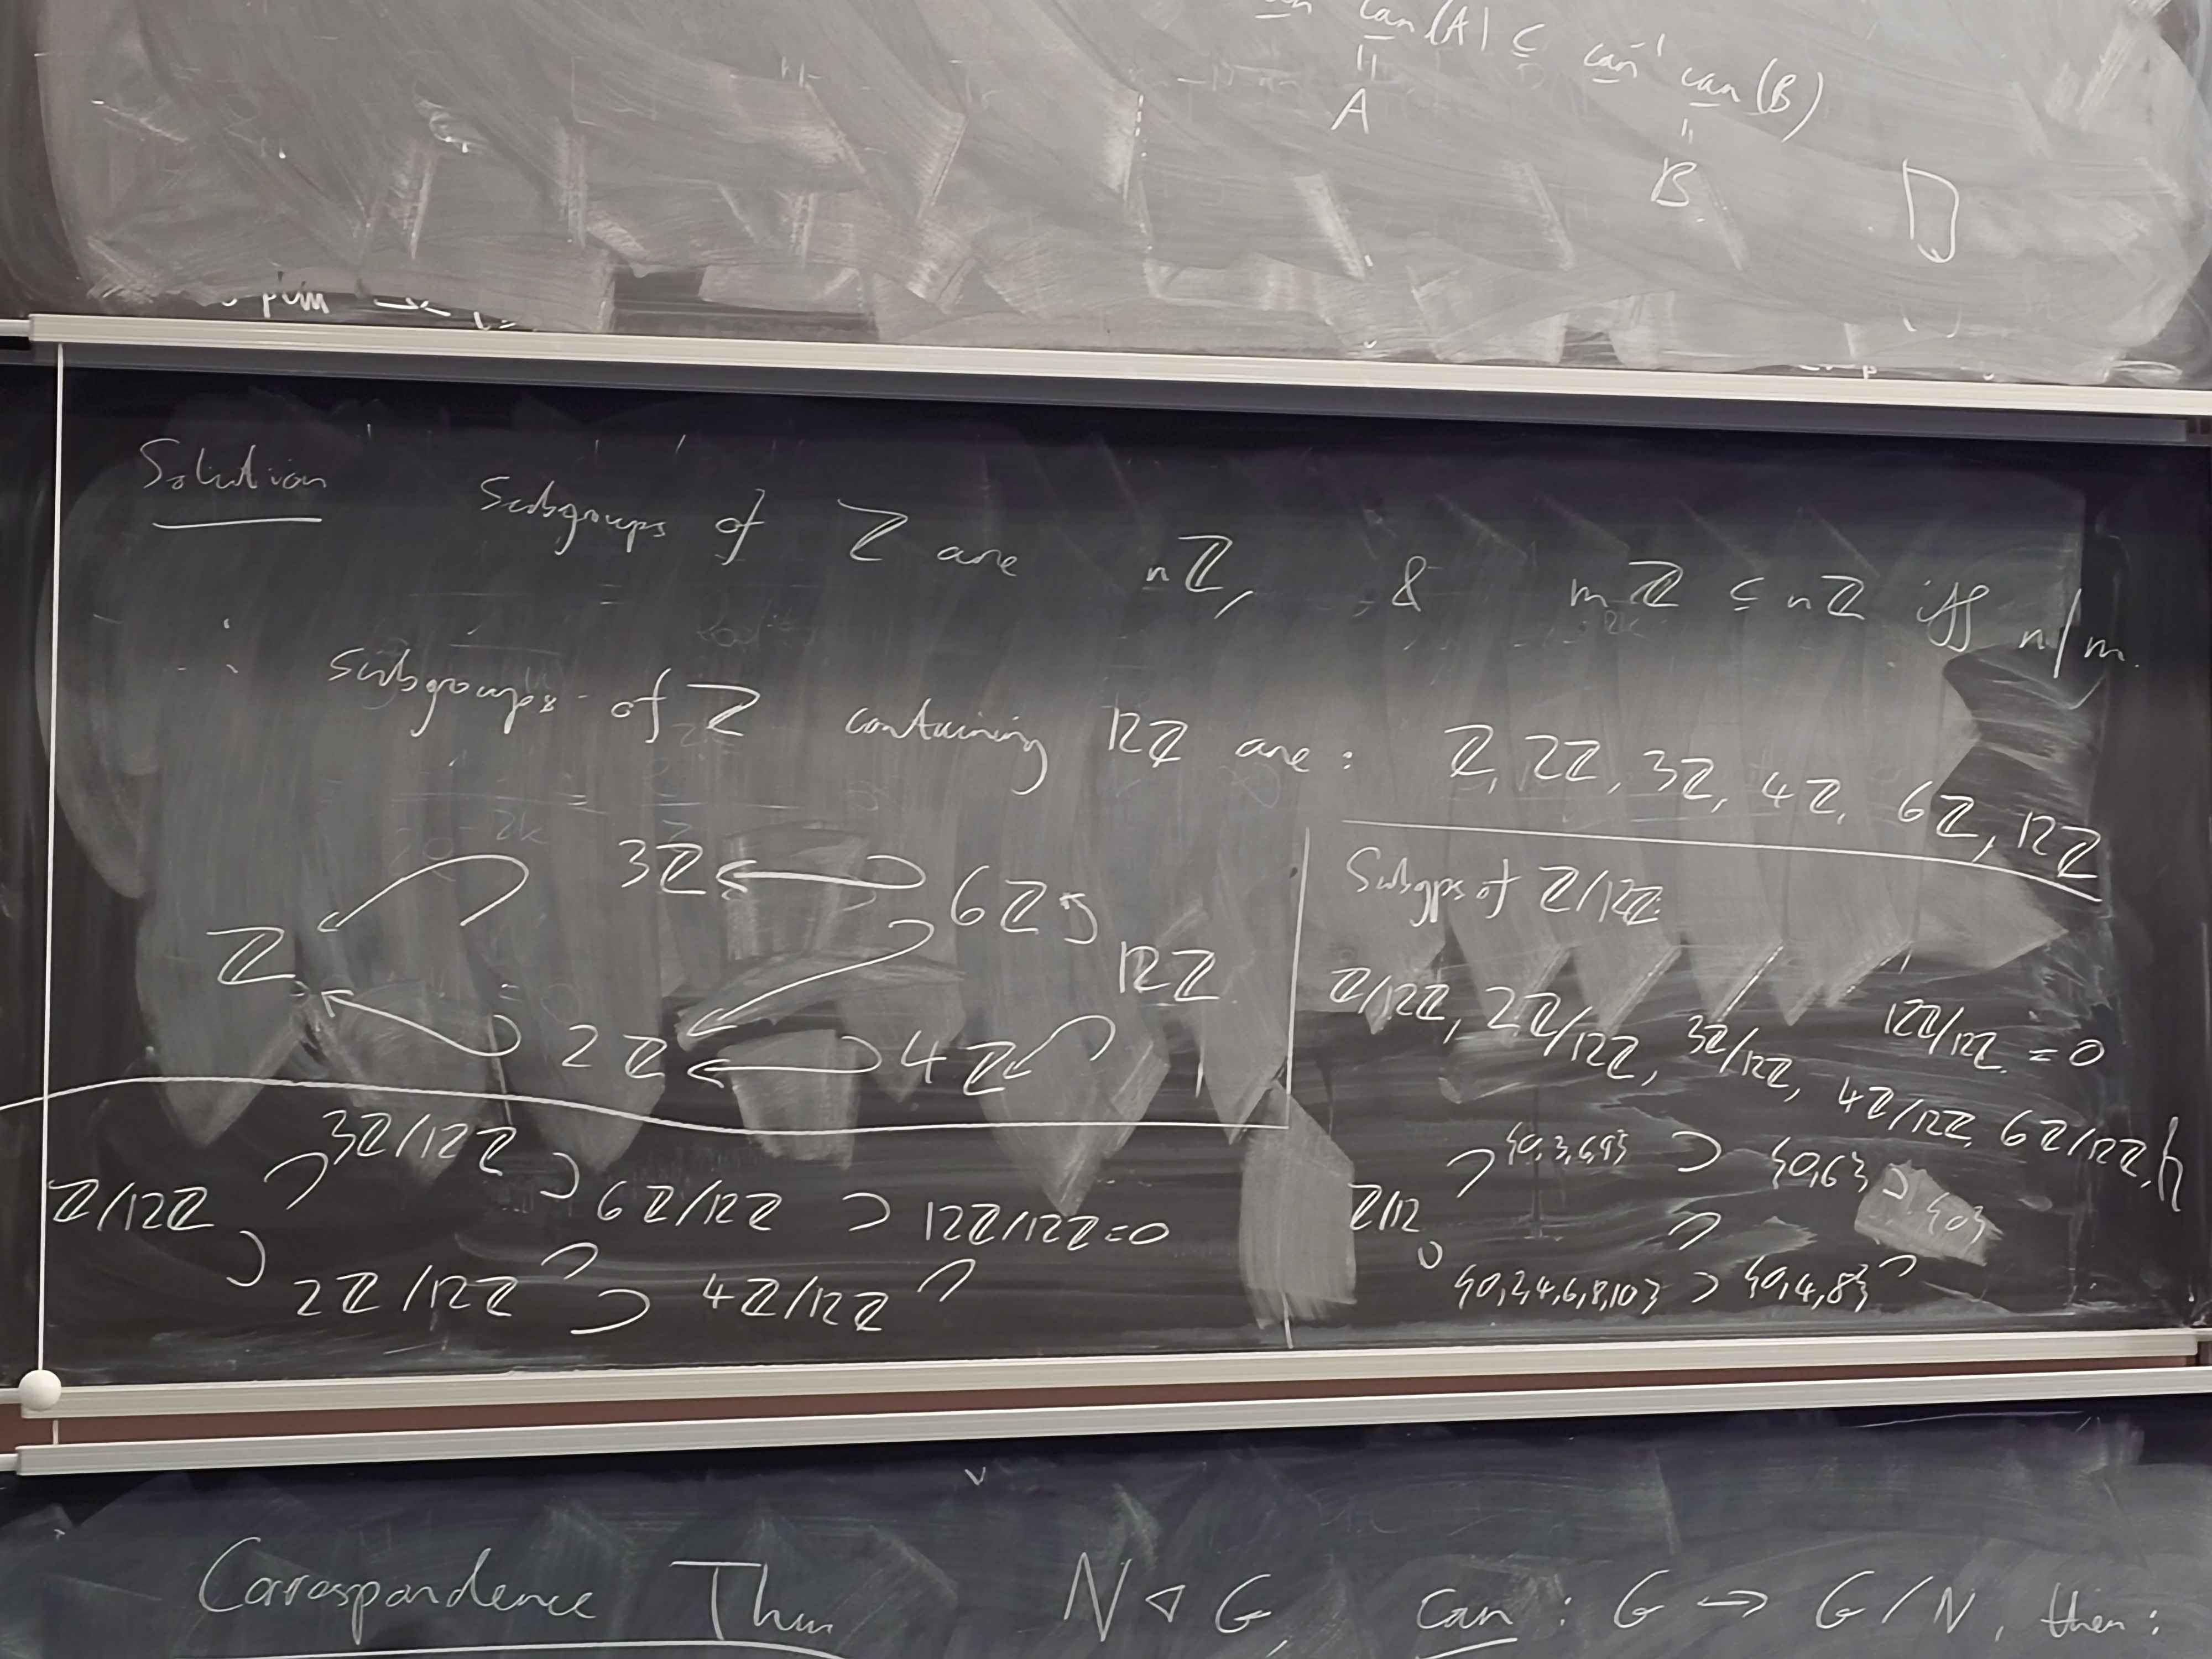 can(A) ⊆ can⁻¹ can(B)
= =
A B
Solution Subgroups of ℤ are nℤ, & mℤ ⊆ nℤ iff n|m.
∴ subgroups of ℤ containing 12ℤ are: ℤ, 2ℤ, 3ℤ, 4ℤ, 6ℤ, 12ℤ
3ℤ ↩ 6ℤ ↩
ℤ 12ℤ
2ℤ ↩ 4ℤ ↩
Subgps of ℤ/12ℤ:
ℤ/12ℤ, 2ℤ/12ℤ, 3ℤ/12ℤ, 4ℤ/12ℤ, 6ℤ/12ℤ,
12ℤ/12ℤ = 0
3ℤ/12ℤ ⊃ 6ℤ/12ℤ ⊃ 12ℤ/12ℤ=0
ℤ/12ℤ
2ℤ/12ℤ ⊃ 4ℤ/12ℤ
{0,3,6,9} ⊃ {0,6} ⊃ {0}
ℤ/12
{0,2,4,6,8,10} ⊃ {0,4,8}
Correspondence Thm N ⊲ G, can : G → G/N, then: